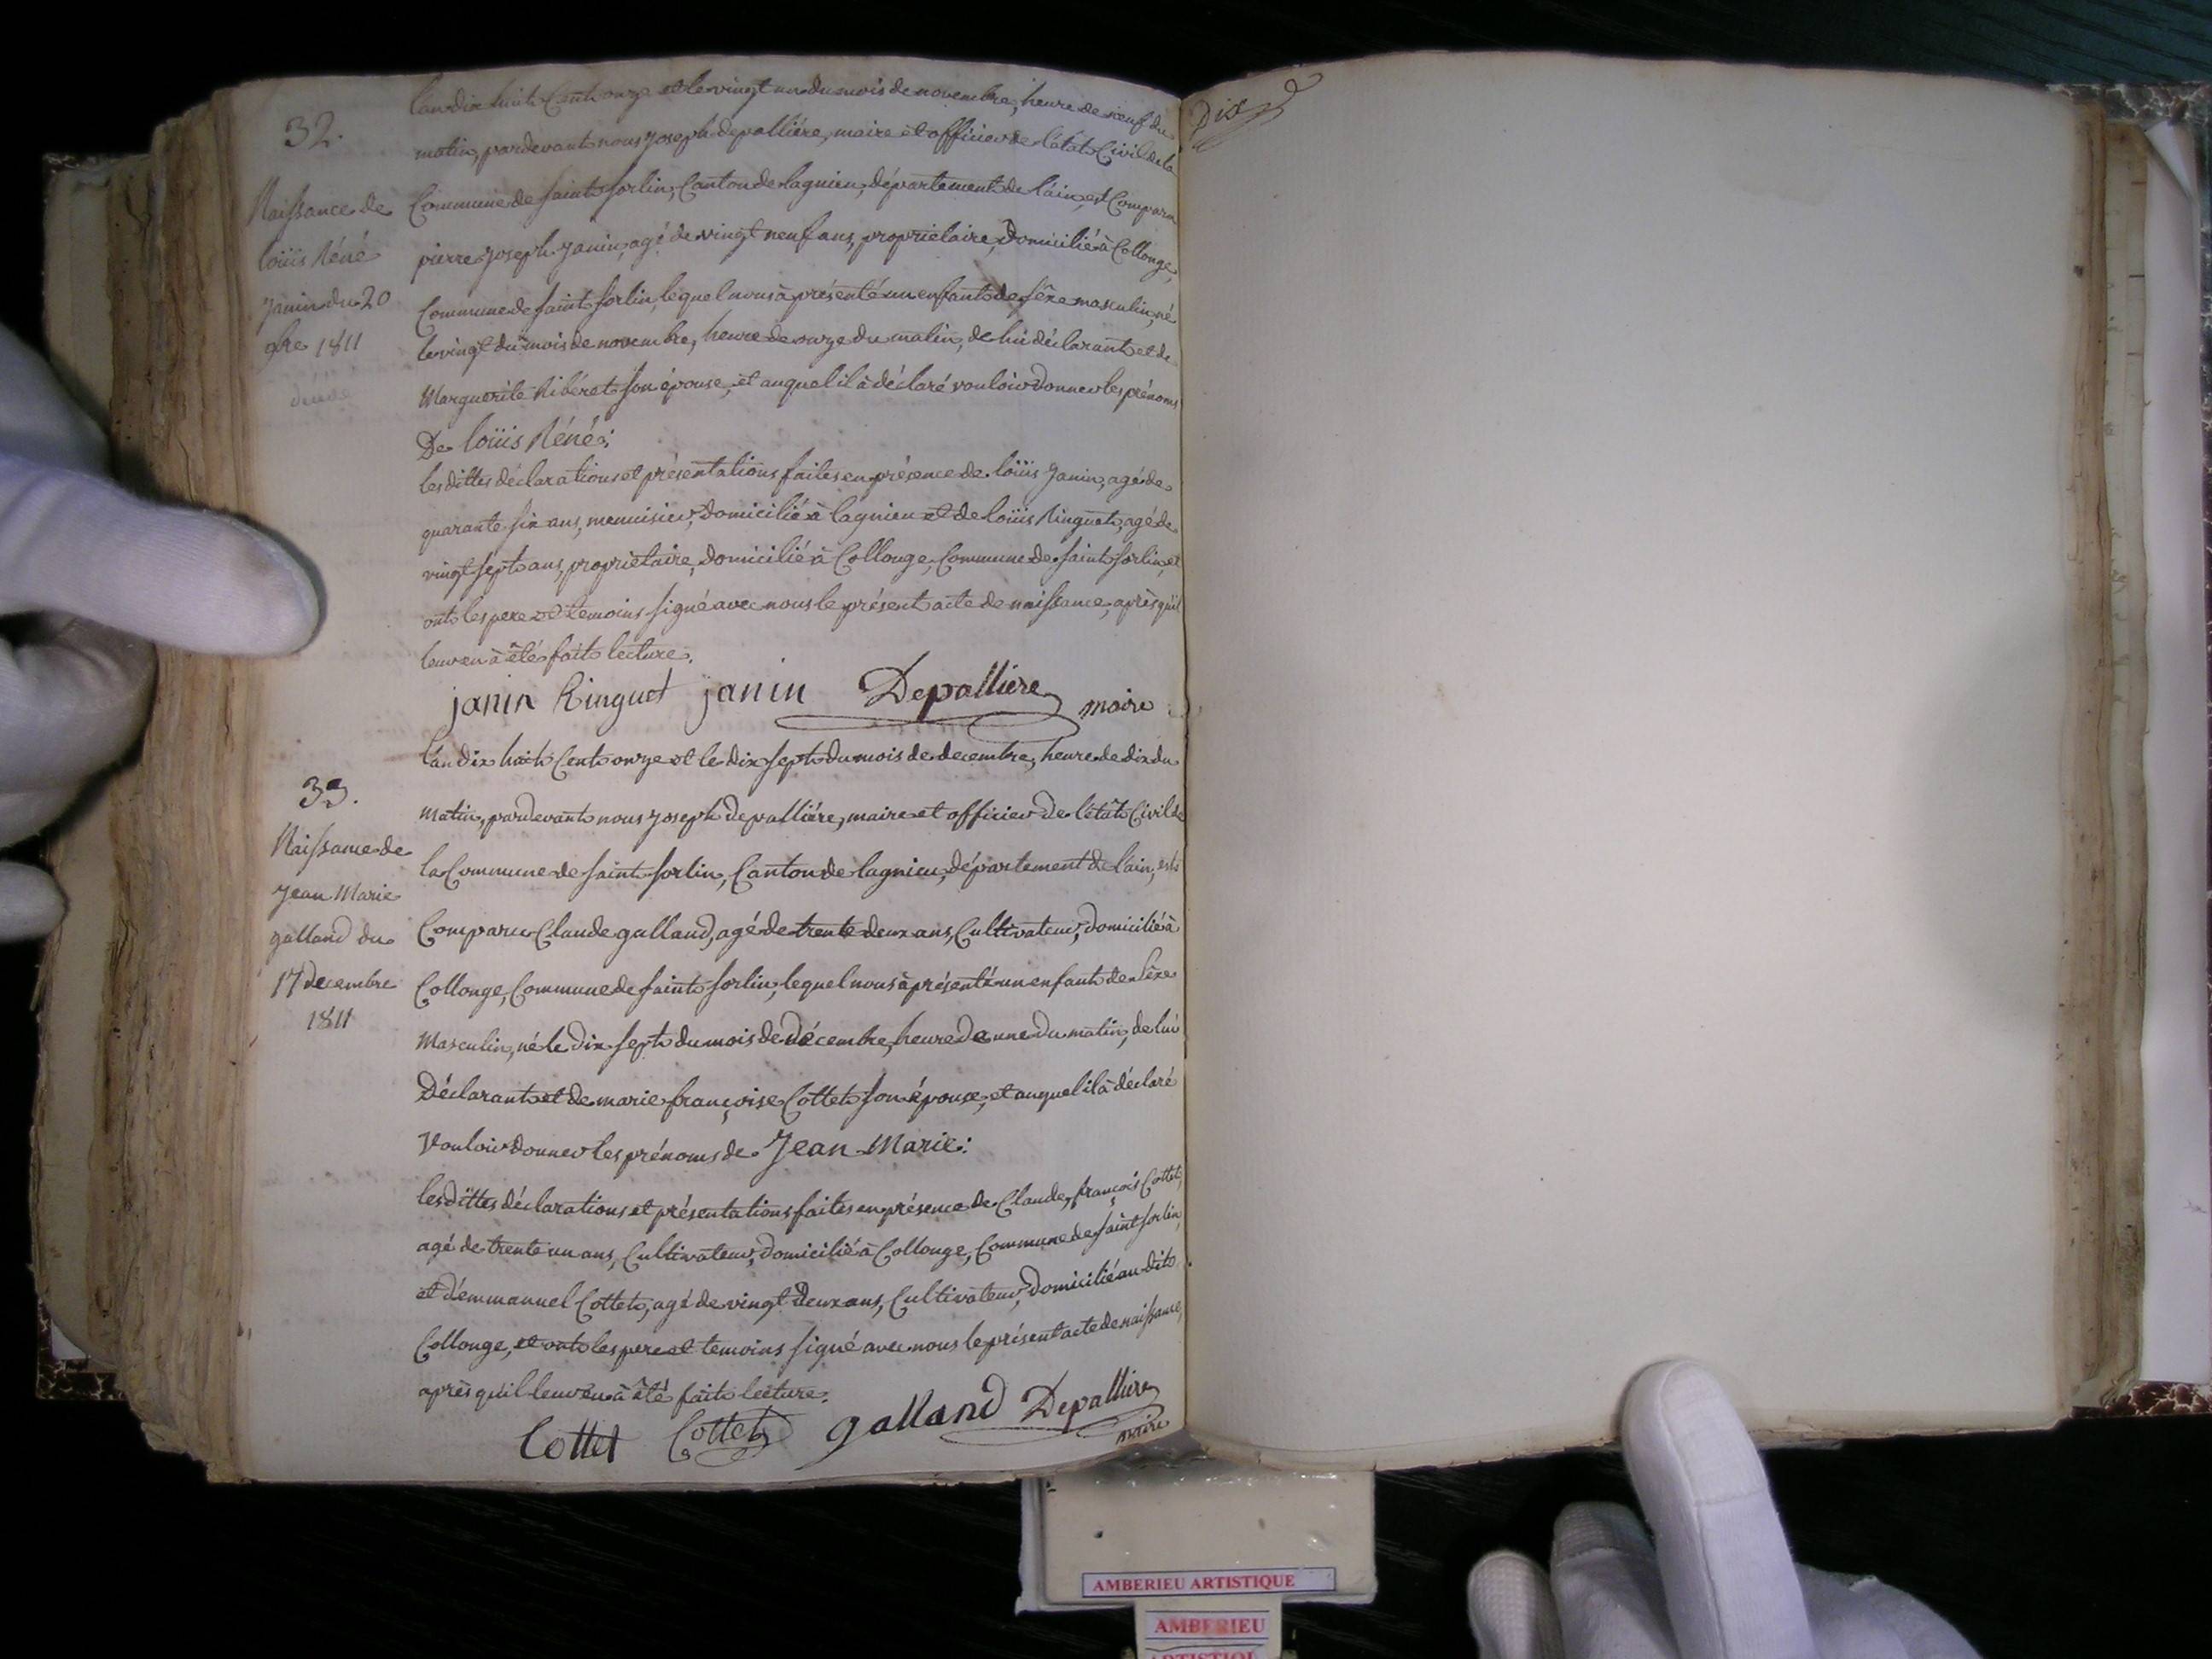 32.
Naissance de
loüis Réné
Janin du 20
9bre 1811
l'an dix huit Cent onze et le vingt un du mois de novembre, heure de neuf du
matin, pardevant nous Joseph depalliére, maire et officier de l'état Civil de la
Commune de saint sorlin, Canton de lagnieu, département de l'ain, est Comparu
pierre Joseph Janin, agé de vingt neuf ans, propriétaire, Domicilié à Collonge,
Commune de saint sorlin, lequel nous à présenté un enfant de séxe masculin, né
le vingt du mois de novembre, heure de onze du matin, de lui déclarant et de
Marguerite Ribéret son épouse, et auquel il à déclaré vouloir Donner les prénoms
De loüis Réné:
les dittes déclarations et présentations faites en présence de loüis Janin, agé de
quarante six ans, menuisier, Domicilié à lagnieu et de loüis Ringuet, agé de
vingt sept ans, propriétaire, Domicilié à Collonge, Commune de saint sorlin, et
ont les pere et temoins signé avec nous le présent acte de naissance, après qu'il
leur en à été fait lecture.
janin Ringuet janin Depalliere maire
33.
Naissance de
Jean Marie
galland du
17 decembre
1811
l'an Dix huit Cent onze et le dix sept du mois de decembre, heure de dix du
matin, pardevant nous Joseph Depalliére, maire et officier de l'état Civil de
la Commune de saint sorlin, Canton de lagnieu, département de l'ain, est
Comparu Claude galland, agé de trente deux ans, Cultivateur, Domicilié à
Collonge, Commune de saint sorlin, lequel nous à présenté un enfant de séxe
Masculin, né le Dix sept du mois de Décembre, heure De une Du matin, de lui
Déclarant et de marie françoise Cottet son épouse, et auquel il à déclaré
Vouloir Donner les prénoms de Jean Marie:
les dittes déclarations et présentations faites en présence de Claude françois Cottet,
agé de trente un ans, Cultivateur, Domicilié à Collonge, Commune de saint sorlin,
et d'emmanuel Cottet, agé de vingt deux ans, Cultivateur, Domicilié au dit
Collonge, et ont les pere et temoins signé avec nous le présent acte de naissance,
après qu'il leur en à été fait lecture.
Cottet Cottet galland Depalliere
maire
Dix
AMBERIEU ARTISTIQUE
AMBERIEU
ARTISTIQUE